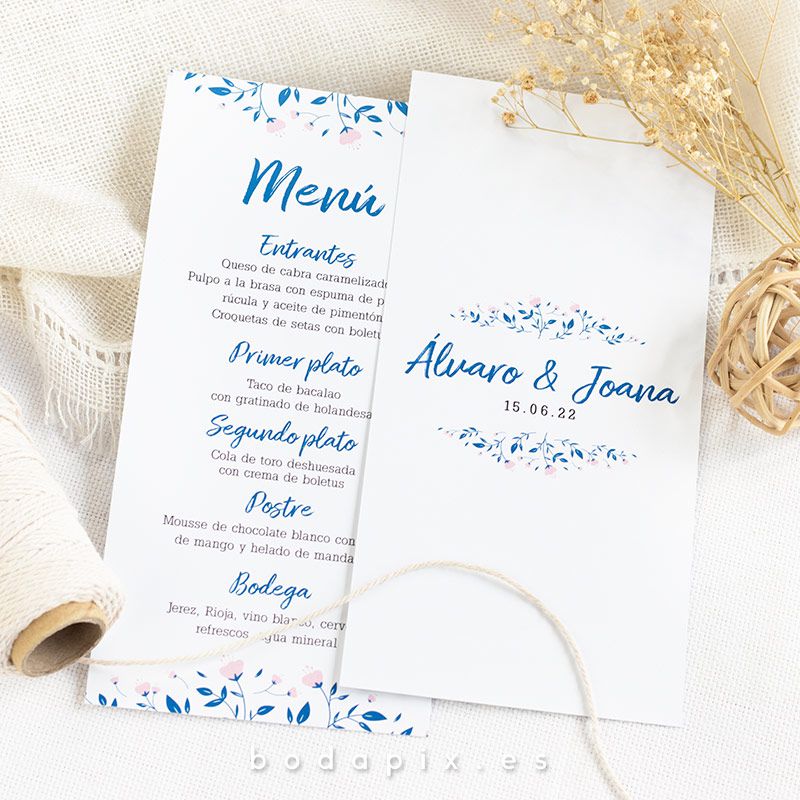 Menú
Entrantes
Queso de cabra caramelizado
Pulpo a la brasa con espuma de
rúcula y aceite de pimentón
Croquetas de setas con boletu
Primer plato
Taco de bacalao
con gratinado de holandesa
Segundo plato
Cola de toro deshuesada
con crema de boletus
Postre
Mousse de chocolate blanco con
de mango y helado de manda
Bodega
Jerez, Rioja, vino blanco, cerv
refrescos, agua mineral
Álvaro & Joana
15.06.22
bodapix.es